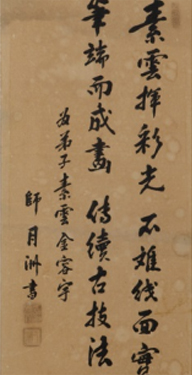 素雲揮彩光 不難後面實
筆端而成畫 傳續古技法
為弟子素雲金容宇
師月洲書